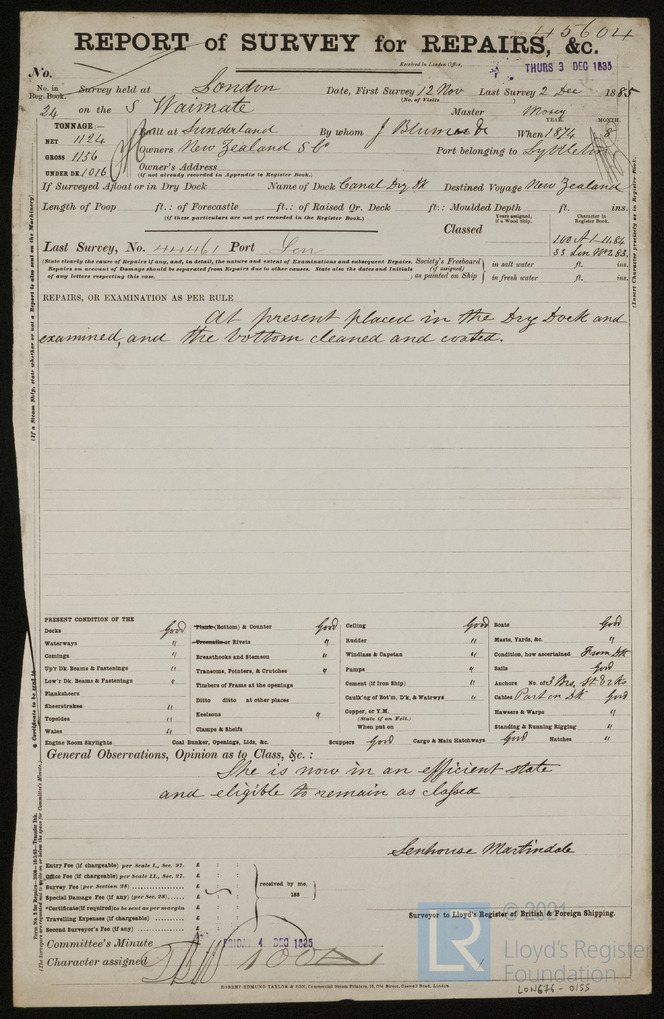 45604
REPORT of SURVEY for REPAIRS, &c.
Received in London Office,
THURS 3 DEC 1885
No.
No. in Reg. Book. Survey held at London Date, First Survey 12 Nov Last Survey 2 Dec 1885
(No. of Visits
24 on the S Waimate Master Mosey
TONNAGE:— YEAR. MONTH.
NET 1124 Built at Sunderland By whom J Blumer & Co When 1874 8
GROSS 1156 Owners New Zealand S Co Port belonging to Lyttleton
UNDER DK. 1016 Owner's Address
(if not already recorded in Appendix to Register Book.)
If Surveyed Afloat or in Dry Dock Name of Dock Canal Dry Dk Destined Voyage New Zealand
Length of Poop ft.: of Forecastle ft.: of Raised Qr. Deck ft.: Moulded Depth ft. ins.
(if these particulars are not yet recorded in the Register Book.)
Years assigned, if a Wood Ship. Character in Register Book.
Classed 100 A1 11.84
Last Survey, No. 44461 Port Lon SS Lon No 2.83
(State clearly the cause of Repairs if any, and, in detail, the nature and extent of Examinations and subsequent Repairs.
Repairs on account of Damage should be separated from Repairs due to other causes. State also the dates and Initials
of any letters respecting this case.
Society's Freeboard (if assigned) as painted on Ship in salt water ft. ins.
in fresh water ft. ins.
REPAIRS, OR EXAMINATION AS PER RULE
At present placed in the Dry Dock and
examined, and the bottom cleaned and coated.
PRESENT CONDITION OF THE
Decks Good Plank (Bottom) & Counter Good Ceiling Good Boats Good
Waterways " Treenails or Rivets " Rudder " Masts, Yards, &c. "
Comings " Breasthooks and Stemson " Windlass & Capstan " Condition, how ascertained From Dk
Up'r Dk. Beams & Fastenings " Transoms, Pointers, & Crutches " Pumps " Sails Good
Low'r Dk. Beams & Fastenings " Timbers of Frame at the openings Cement (if Iron Ship) " Anchors No. of 3 Brs, St & 2 Ks
Planksheers Ditto ditto at other places Caulk'ng of Bot'm, D'k, & Waterways " Cables Part on Dk Good
Sheerstrakes " Keelsons " Copper, or Y.M. Hawsers & Warps "
Topsides " Clamps & Shelfs (State if on Felt.) Standing & Running Rigging "
Wales " When put on
Engine Room Skylights Coal Bunker, Openings, Lids, &c. Scuppers Good Cargo & Main Hatchways Good Hatches "
General Observations, Opinion as to Class, &c.:
She is now in an efficient state
and eligible to remain as classed
Senhouse Martindale
Surveyor to Lloyd's Register of British & Foreign Shipping.
Entry Fee (if chargeable) per Scale I., Sec. 27. £ : :
Office Fee (if chargeable) per Scale II., Sec. 27. £ : :
Survey Fee (per Section 28) £ : :
Special Damage Fee (if any) (per Sec. 28) £ : :
*Certificate (if required) to be sent as per margin £ : :
Travelling Expenses (if chargeable) £ : :
Second Surveyor's Fee (if any) £ : :
received by me,
188
Committee's Minute FRIDAY 4 DEC 1885
Character assigned 100A1
ROBERT EDMUND TAYLOR & SON, Commercial Steam Printers, 19, Old Street, Goswell Road, London.
(If a Steam Ship, state whether or not a Report is also sent on the Machinery)
(Insert Character precisely as in Register Book.
LR
© 2021
Lloyd's Register
Foundation
LON676-0155